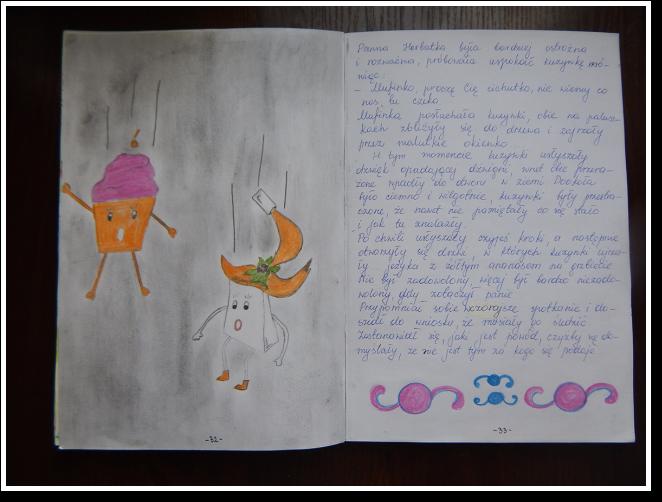 Panna Herbatka była bardziej ostrożna
i rozważna, próbowała uspokoić kuzynkę mó-
wiąc:
- Mufinko, proszę Cię cichutko, nie wiemy co
nas tu czeka.
Mufinka posłuchała kuzynki, obie na palusz-
kach zbliżyły się do drzewa i zajrzały
przez malutkie okienko.
W tym momencie kuzynki usłyszały
dźwięk opadającej dźwigni, wnet obie przera-
żone wpadły do dworu w ziemi. Dookoła
było ciemno i wilgotnie, kuzynki były przera-
żone, że nawet nie pamiętały co się stało
i jak tu znalazły.
Po chwili usłyszały czyjeś kroki, a następnie
otworzyły się drzwi, w których kuzynki ujrza-
ły jeżyka z żółtym ananasem na grzbiecie.
Nie był zadowolony, więcej był bardzo niezado-
wolony, gdy zobaczył panie.
Przypomniał sobie wczorajsze spotkanie i do-
szedł do wniosku, że musiały go śledzić.
Zastanawiał się, jaki jest powód, czyżby się do-
myślały, że nie jest tym za kogo się podaje.
-32-
-33-